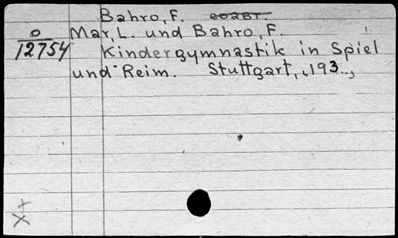 Bahro, F. соавт.
о Mar, L. und Bahro, F.
12754 Kindergymnastik in Spiel
und Reim. Stuttgart, 193..,